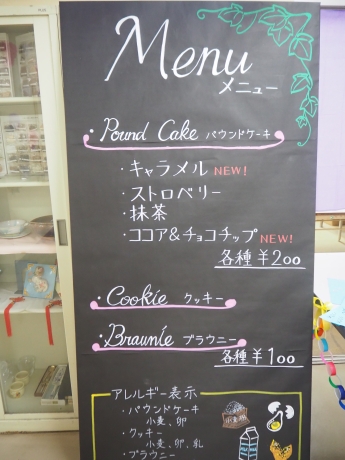 Menu
メニュー
・Pound Cake パウンドケーキ
・キャラメル NEW!
・ストロベリー
・抹茶
・ココア&チョコチップ NEW!
各種 ¥200
・Cookie クッキー
・Braunie ブラウニー
各種 ¥100
アレルギー表示
・パウンドケーキ
小麦、卵
・クッキー
小麦、卵、乳
・ブラウニー